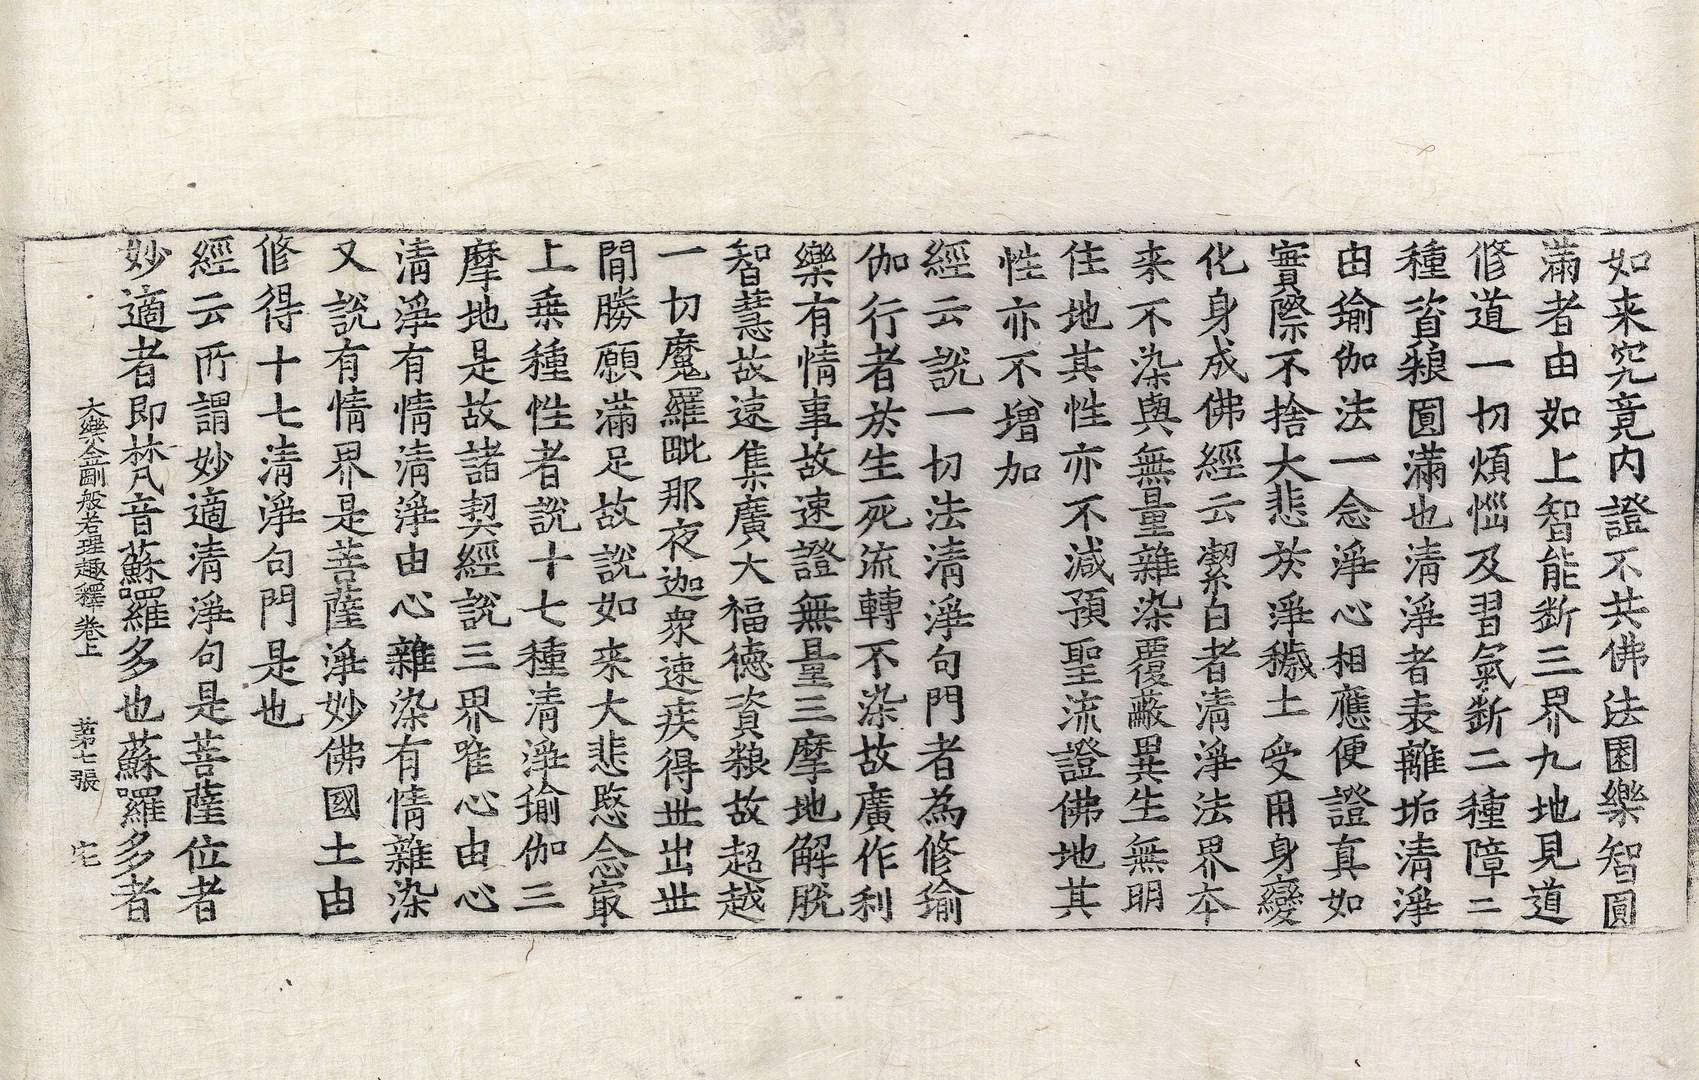 如来究竟内證不共佛法圎樂智圓
滿者由如上智能断三界九地見道
修道一切煩惱及習氣断二種障二
種資粮圓滿也清淨者表離垢清淨
由瑜伽法一念淨心相應便證真如
實際不捨大悲於淨穢土受用身變
化身成佛經云潔白者清淨法界夲
来不染與無量雜染覆蔽異生無明
住地其性亦不減預聖流證佛地其
性亦不增加
經云說一切法清淨句門者為修瑜
伽行者於生死流轉不染故廣作利
樂有情事故速證無量三摩地解脫
智慧故速集廣大福德資粮故超越
一切魔羅毗那夜迦衆速疾得丗出丗
間勝願滿足故說如来大悲愍念㝡
上乗種性者說十七種清淨瑜伽三
摩地是故諸契經說三界唯心由心
清淨有情清淨由心雜染有情雜染
又說有情界是菩薩淨妙佛國土由
修得十七清淨句門是也
經云所謂妙適清淨句是菩薩位者
妙適者即梵音蘇囉多也蘇囉多者
大樂金剛般若理趣釋卷上 第七張 宅